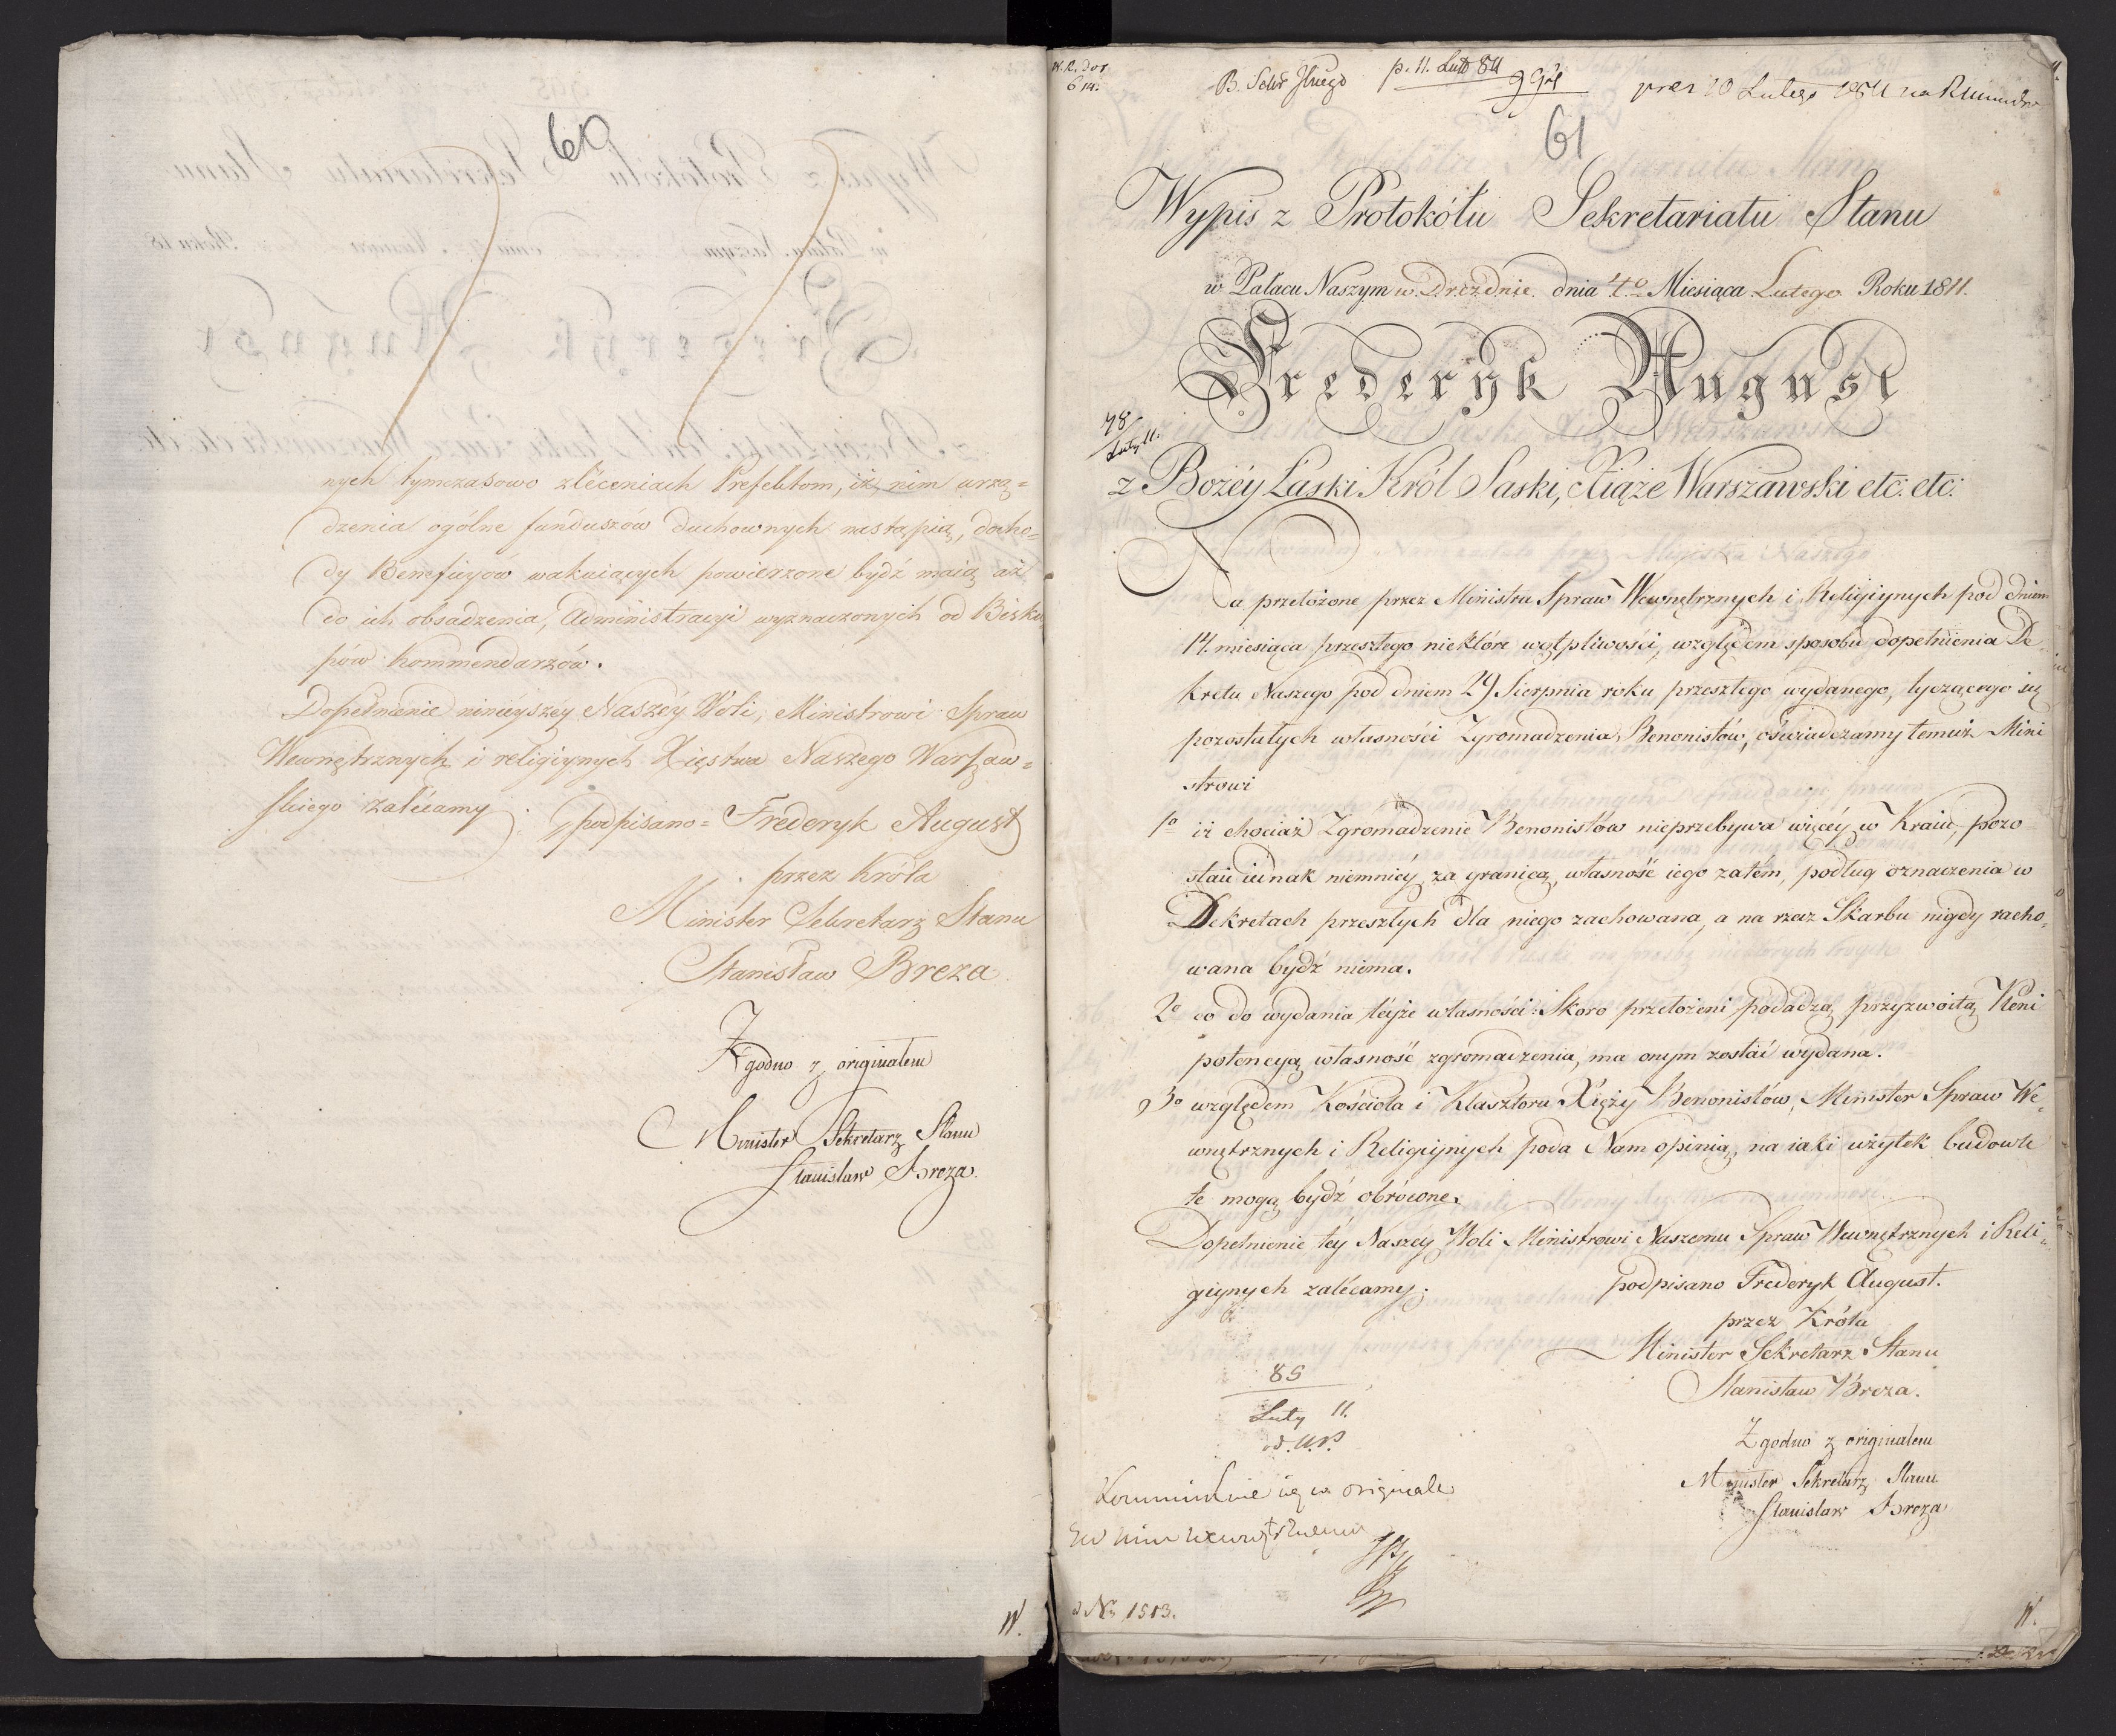 60
nych tymczasowo zleceniach Prefektom, iż, nim urzą=
dzenia ogólne funduszów duchownych nastąpią, docho=
dy Beneficyów wakuiących powierzone bydź maią aż
do ich obsadzenia, Administracyi wyznaczonych od Bisku
pów Kommendarzów.
Dopełnienie ninieyszey Naszéy Woli, Ministrowi Spraw
Wewnętrznych i religiynych Xięstwa Naszego Warszaw=
skiego zalécamy. podpisano = Frederyk August
przez Króla
Minister Sekretarz Stanu
Stanisław Breza
Zgodno z originałem
Minister Sekretarz Stanu
Stanisław Breza.
W.
p. 11. Lut 811
994
pres 10 Lutego 1811
61
Wypis z Protokółu Sekretariatu Stanu
w Pałacu Naszym w Dreznie dnia 4.o Miesiąca Lutego Roku 1811.
Frederyk August
78
Luty 11.
z Bozéy Łaski Król Saski, Xiąże Warszawski etc: etc:
Na przełożone przez Ministra Spraw Wewnętrznych i Religiynych pod dniem
14. miesiąca przeszłego niektóre wątpliwości, względem sposobu dopełnienia De
kretu Naszego pod dniem 29 Sierpnia roku przeszłego wydanego, tyczącego się
pozostałych własności Zgromadzenia Benonistów, oświadczamy temuż Mini
strowi
1o iż chociaż Zgromadzenie Benonistów nieprzebywa więcéy w Kraiu, pozo
staie iednak niemniéy za granicą, własność iego zatém, podług oznaczenia w
Dekretach przeszłych dla niego zachowana, a na rzecz Skarbu nigdy racho=
wana bydź niema.
2o co do wydania téyże własności: Skoro przełożeni podadzą przyzwoitą Pleni
potencyą własność zgromadzenia, ma onym zostać wydana.
3o względem Kościoła i Klasztoru Xięży Benonistów, Minister Spraw We=
wnętrznych i Religiynych poda Nam opinią, na iaki użytek budowle
te mogą bydź obrócone.
Dopełnienie téy Naszéy Woli Ministrowi Naszemu Spraw Wewnętrznych i Reli=
giynych zalécamy. podpisano Frederyk August.
przez Króla
Minister Sekretarz Stanu
Stanisław Breza.
85
Luty 11.
Zgodno z originałem
Minister Sekretarz Stanu
Stanisław Breza
originale
No 1513.
W.